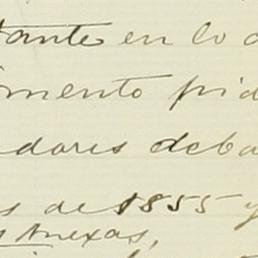 tante en lo
imento pid
dores deba
s de 1855 y
s Anexas,